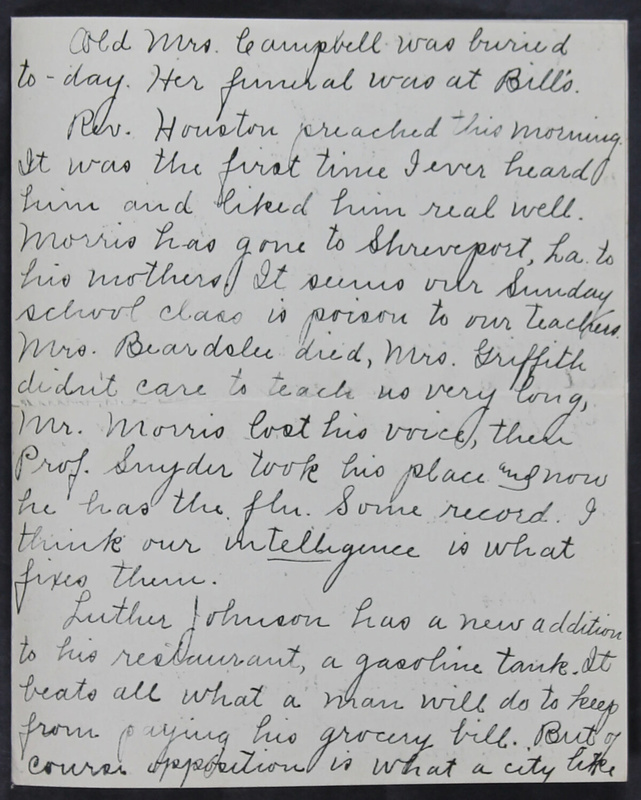 Old Mrs. Campbell was buried
to-day. Her funeral was at Bill's.
Rev. Houston preached this morning.
It was the first time I ever heard
him and liked him real well.
Morris has gone to Shreveport, La. to
his mothers. It seems our Sunday
school class is poison to our teachers.
Mrs. Beardslee died, Mrs. Griffith
didn't care to teach us very long,
Mr. Morris lost his voice, then
Prof. Snyder took his place and now
he has the flu. Some record. I
think our intelligence is what
fixes them.
Luther Johnson has a new addition
to his restaurant, a gasoline tank. It
beats all what a man will do to keep
from paying his grocery bill. But of
course opposition is what a city like